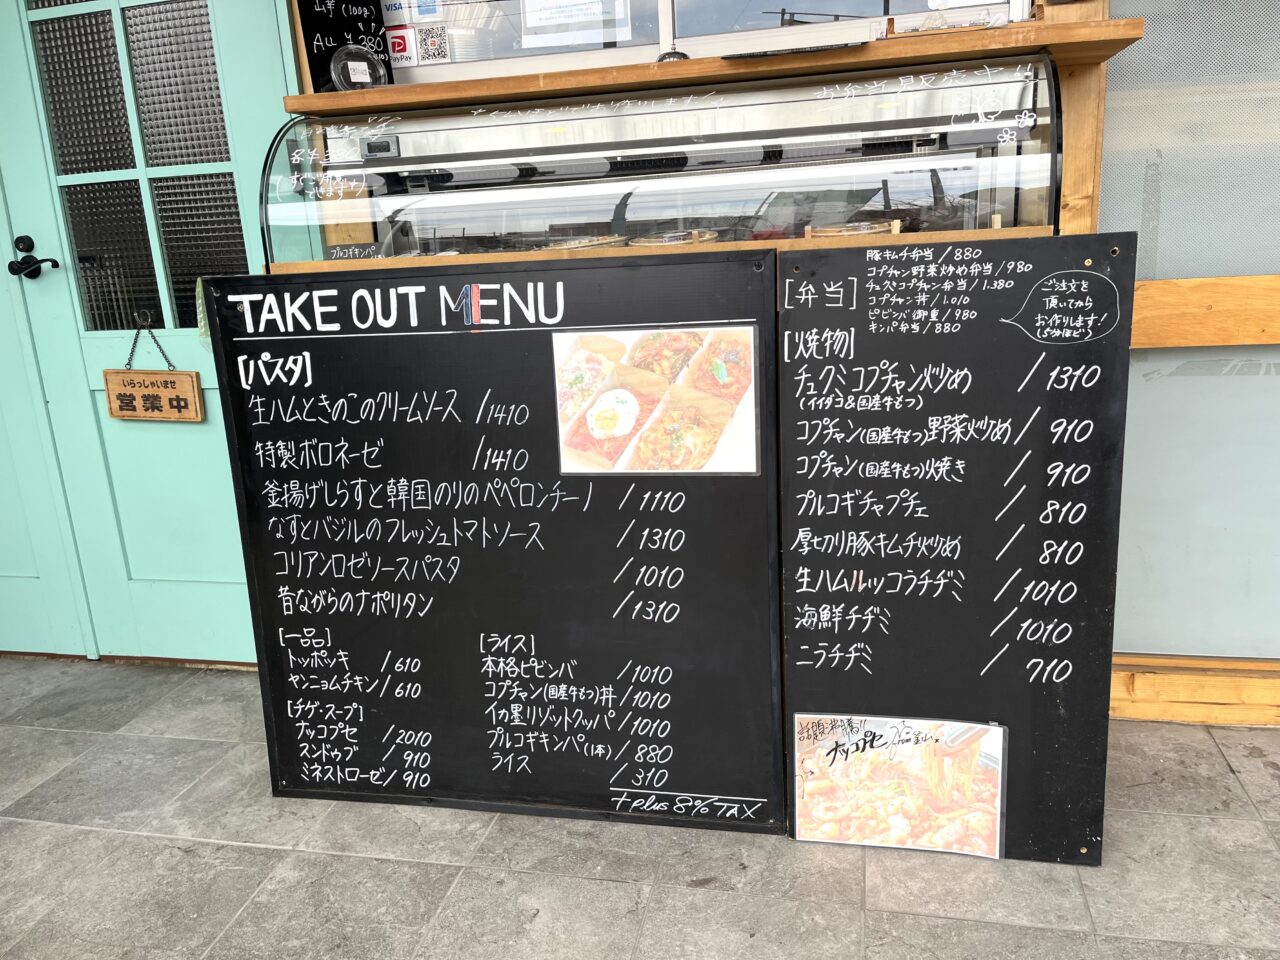 山芋(100g)
ALL ¥380
VISA
PayPay
お弁当販売中!!
プルコギキンパ
いらっしゃいませ
営業中
TAKE OUT MENU
[パスタ]
生ハムときのこのクリームソース /1410
特製ボロネーゼ /1410
釜揚げしらすと韓国のりのペペロンチーノ /1110
なすとバジルのフレッシュトマトソース /1310
コリアンロゼソースパスタ /1010
昔ながらのナポリタン /1310
[一品]
トッポッキ /610
ヤンニョムチキン /610
[チゲ・スープ]
ナッコプセ /2010
スンドゥブ / 910
ミネストローゼ / 910
[ライス]
本格ビビンバ /1010
コプチャン(国産牛もつ)丼 /1010
イカ墨リゾットクッパ /1010
プルコギキンパ(1本) / 880
ライス /310
+plus 8% TAX
[弁当]
豚キムチ弁当 / 880
コプチャン野菜炒め弁当 / 980
チュクミコプチャン弁当 / 1.380
コプチャン丼 / 1.010
ビビンバ御重 / 980
キンパ弁当 / 880
ご注文を
頂いてから
お作りします!
(5分ほど)
[焼物]
チュクミコプチャン炒め /1310
(イイダコ&国産牛もつ)
コプチャン(国産牛もつ)野菜炒め / 910
コプチャン(国産牛もつ)焼き / 910
プルコギチャプチェ / 810
厚切り豚キムチ炒め / 810
生ハムルッコラチヂミ /1010
海鮮チヂミ /1010
ニラチヂミ / 710
話題沸騰!!
ナッコプセ
from 釜山